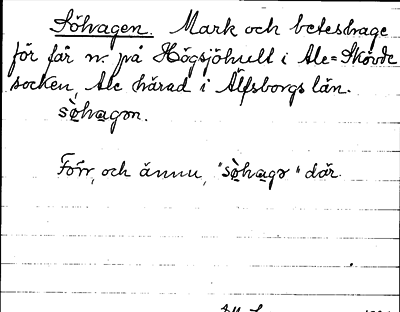 Söhagen. Mark och beteshage
för får n. på Högsjöhult i Ale-Skövde
socken, Ale härad i Älfsborgs län.
sò̤hagon.
Förr, och ännu, "sò̤hagɘ" där.